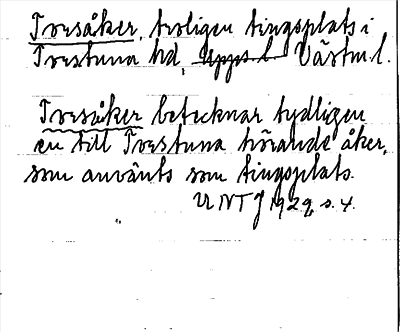 Torsåker, troligen tingsplats i
Torstuna hd, Upps. l. Västm. l.
Torsåker betecknar tydligen
en till Torstuna hörande åker,
som använts som tingsplats.
UNT J 1929, s. 4.